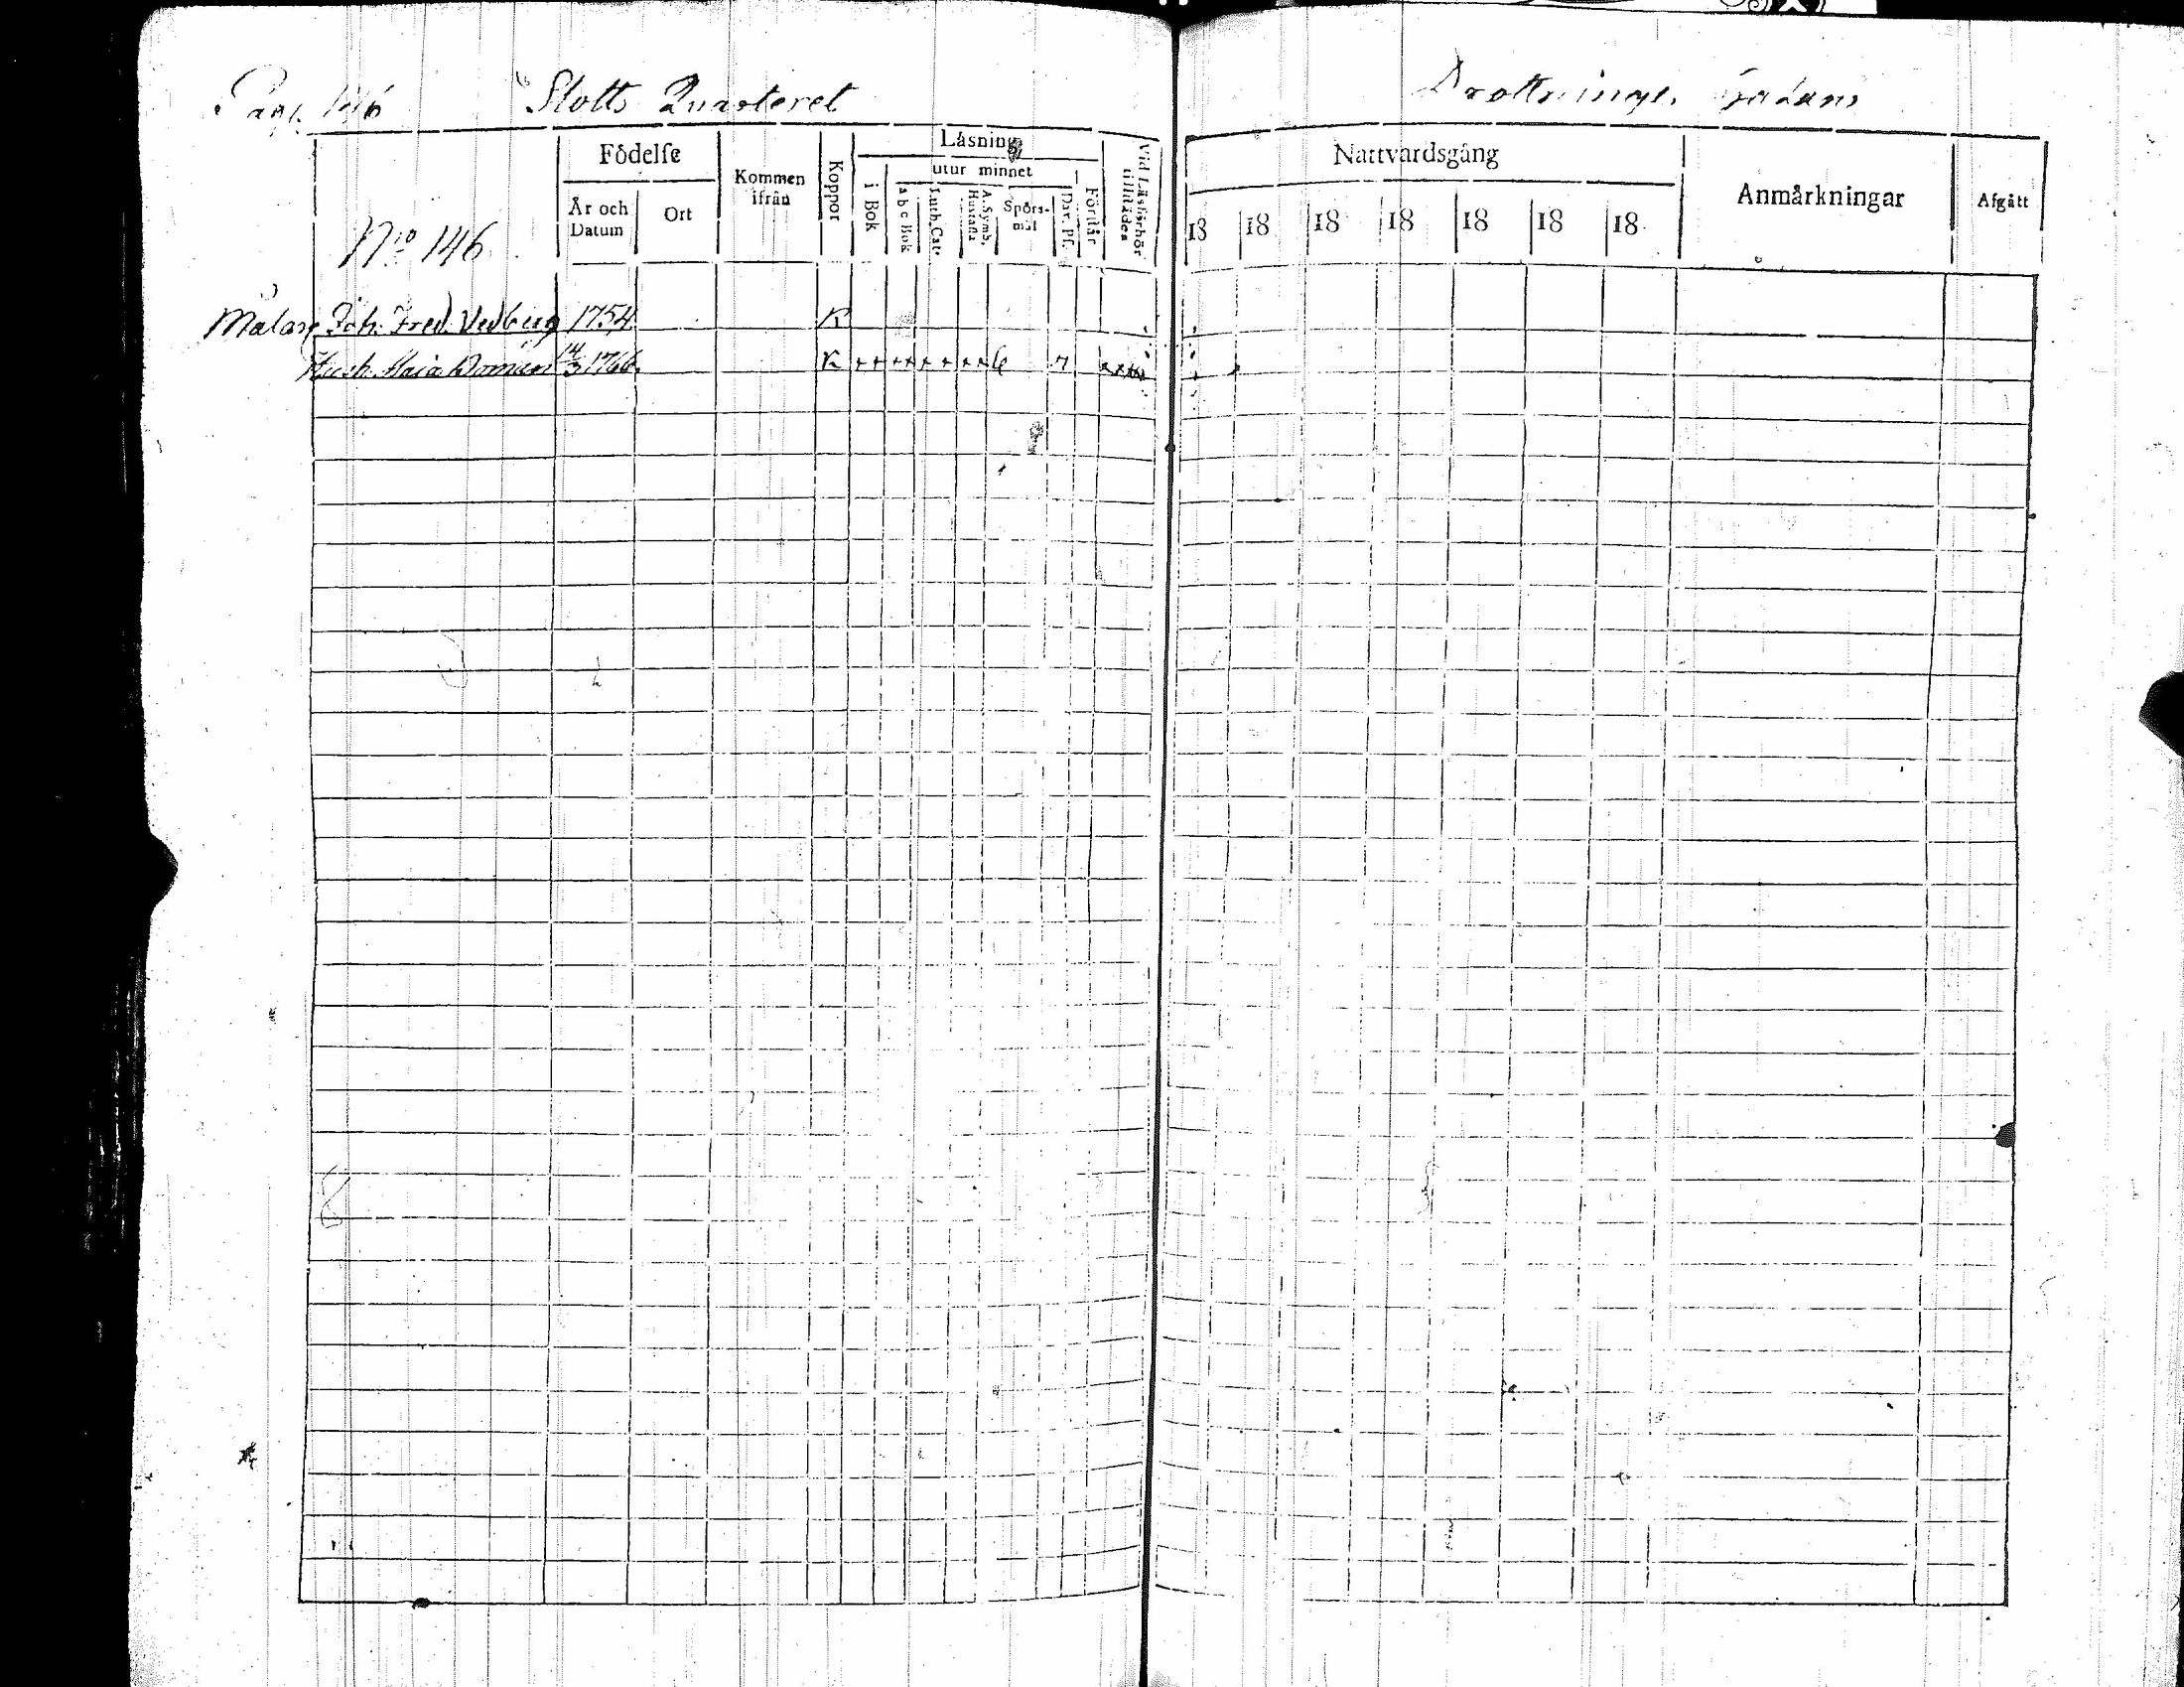 Pag. 146 Slotts Quarteret Drottninge. Gatan
Födelse Kommen ifrån Koppor Läsning Vid Läsförhör tillstädes Nattvardsgång Anmärkningar Afgått
utur minnet
År och Datum Ort i Bok a b c Bok Luth. Cat. A. Symb. Hustafla Spörsmål Dav. Ps. Förstår
18 18 18 18 18 18 18
No 146
Målare Joh. Fred. Vedberg 1754 K
Hust. Maia 14/3 1766 K ++ ++ ++ ++ 6 7